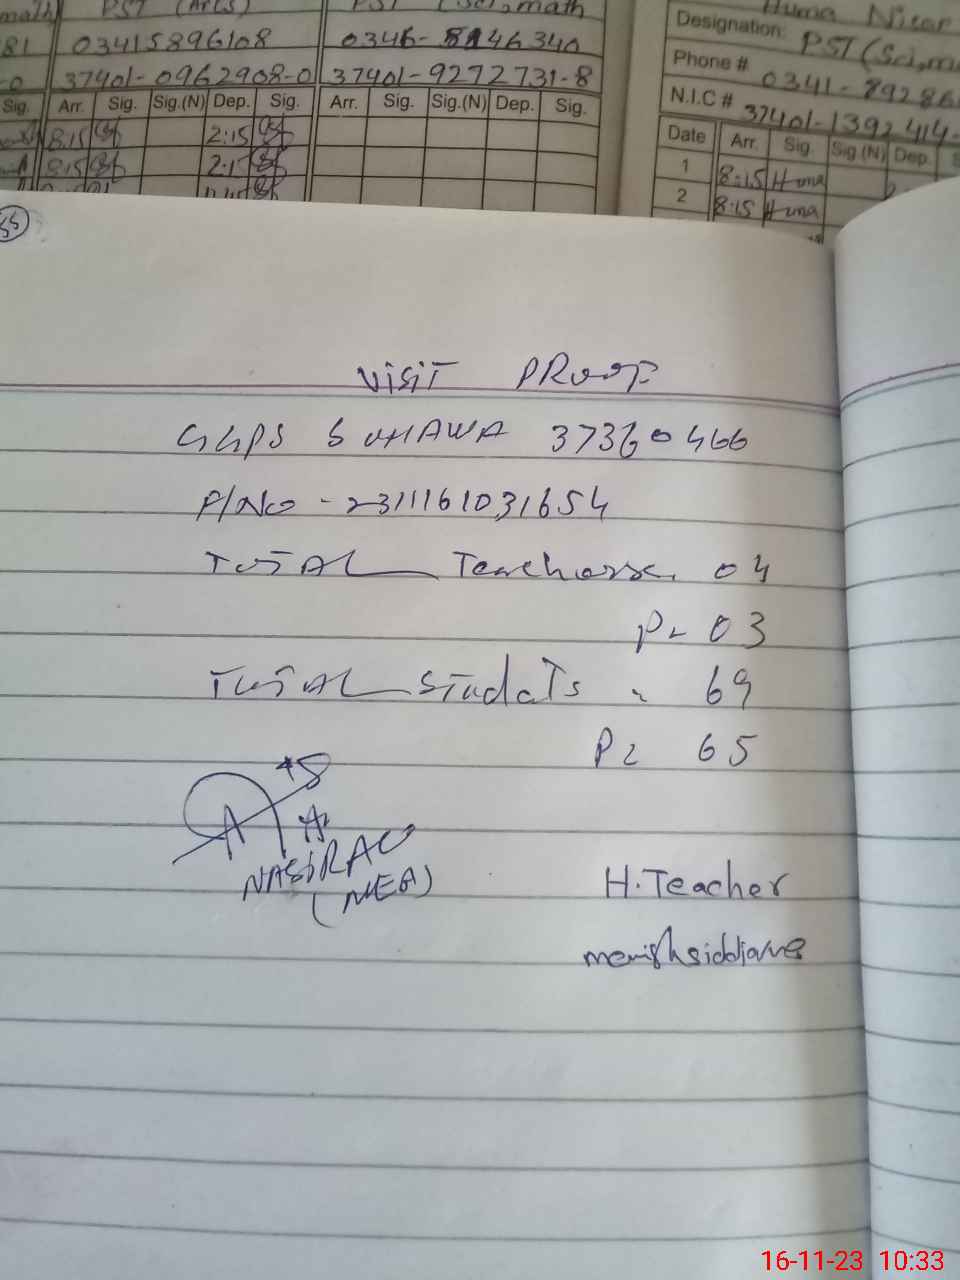 math) PST (Arts) PST (Sci, math
81 03415896108 0346-5146340
-0 37401-0962908-0 37401-9272731-8
Sig. Arr. Sig. Sig.(N) Dep. Sig. Arr. Sig. Sig.(N) Dep. Sig.
8:15 2:15
8:15 2:15
Huma
Designation: PST (Sci, m
Phone # 0341-89286
N.I.C # 37401-1392414-
Date Arr. Sig. Sig.(N) Dep. S
1 8:15 Huma
2 8:15 Huma
55
VISIT PROOF
GGPS SUHAWA 37360466
P/No - 2311161031654
TOTAL Teachers. 04
P- 03
TOTAL Studats - 69
P= 65
NASIR
(MEA)
H. Teacher
16-11-23 10:33